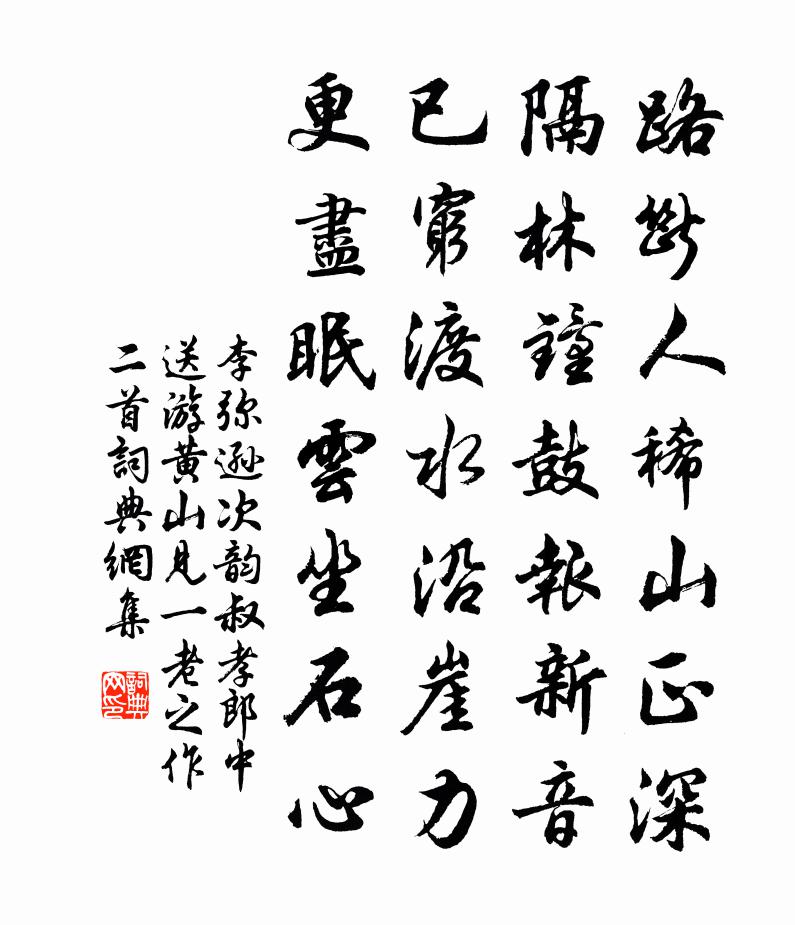 路斷人稀山正深
隔林鐘鼓報新音
已窮渡水沿崖力
更盡眠雲坐石心
李弥遜次韵叔孝郎中
送游黄山見一老之作
二首詞典網集
詞典网印